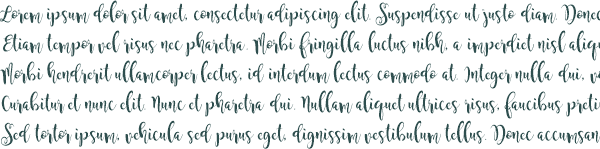 Lorem ipsum dolor sit amet, consectetur adipiscing elit. Suspendisse ut justo diam. Donec
Etiam tempor vel risus nec pharetra. Morbi fringilla luctus nibh, a imperdiet nisl aliqu
Morbi hendrerit ullamcorper lectus, id interdum lectus commodo at. Integer nulla dui, v
Curabitur et nunc elit. Nunc et pharetra dui. Nullam aliquet ultrices risus, faucibus preti
Sed tortor ipsum, vehicula sed purus eget, dignissim vestibulum tellus. Donec accumsan